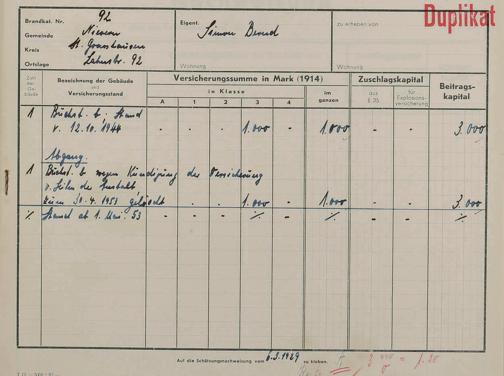 Duplikat
Brandkat. Nr. 92
Gemeinde Nievern
Kreis St. Goarshausen
Ortslage Lahnstr. 92
Eigent. Simon Bernd
Wohnung
zu erheben von
Wohnung
Zahl der Ge- bäude
Bezeichnung der Gebäude und Versicherungsstand
Versicherungssumme in Mark (1914)
in Klasse
A 1 2 3 4
im ganzen
Zuschlagskapital
aus § 35
für Explosions- versicherung
Beitrags- kapital
1 Buchst. b; Stand
v. 12.10.1944 - - - 1.000 - 1.000 - - 3.000
Abgang.
1 Buchst. b wegen Kündigung der Versicherung
zum 30.4.1953 gelöscht - - - 1.000 - 1.000 - - 3.000
% Stand ab 1. Mai 53 - - - % - % - - %
Auf die Schätzungsnachweisung vom 6.3.1929 zu kleben.